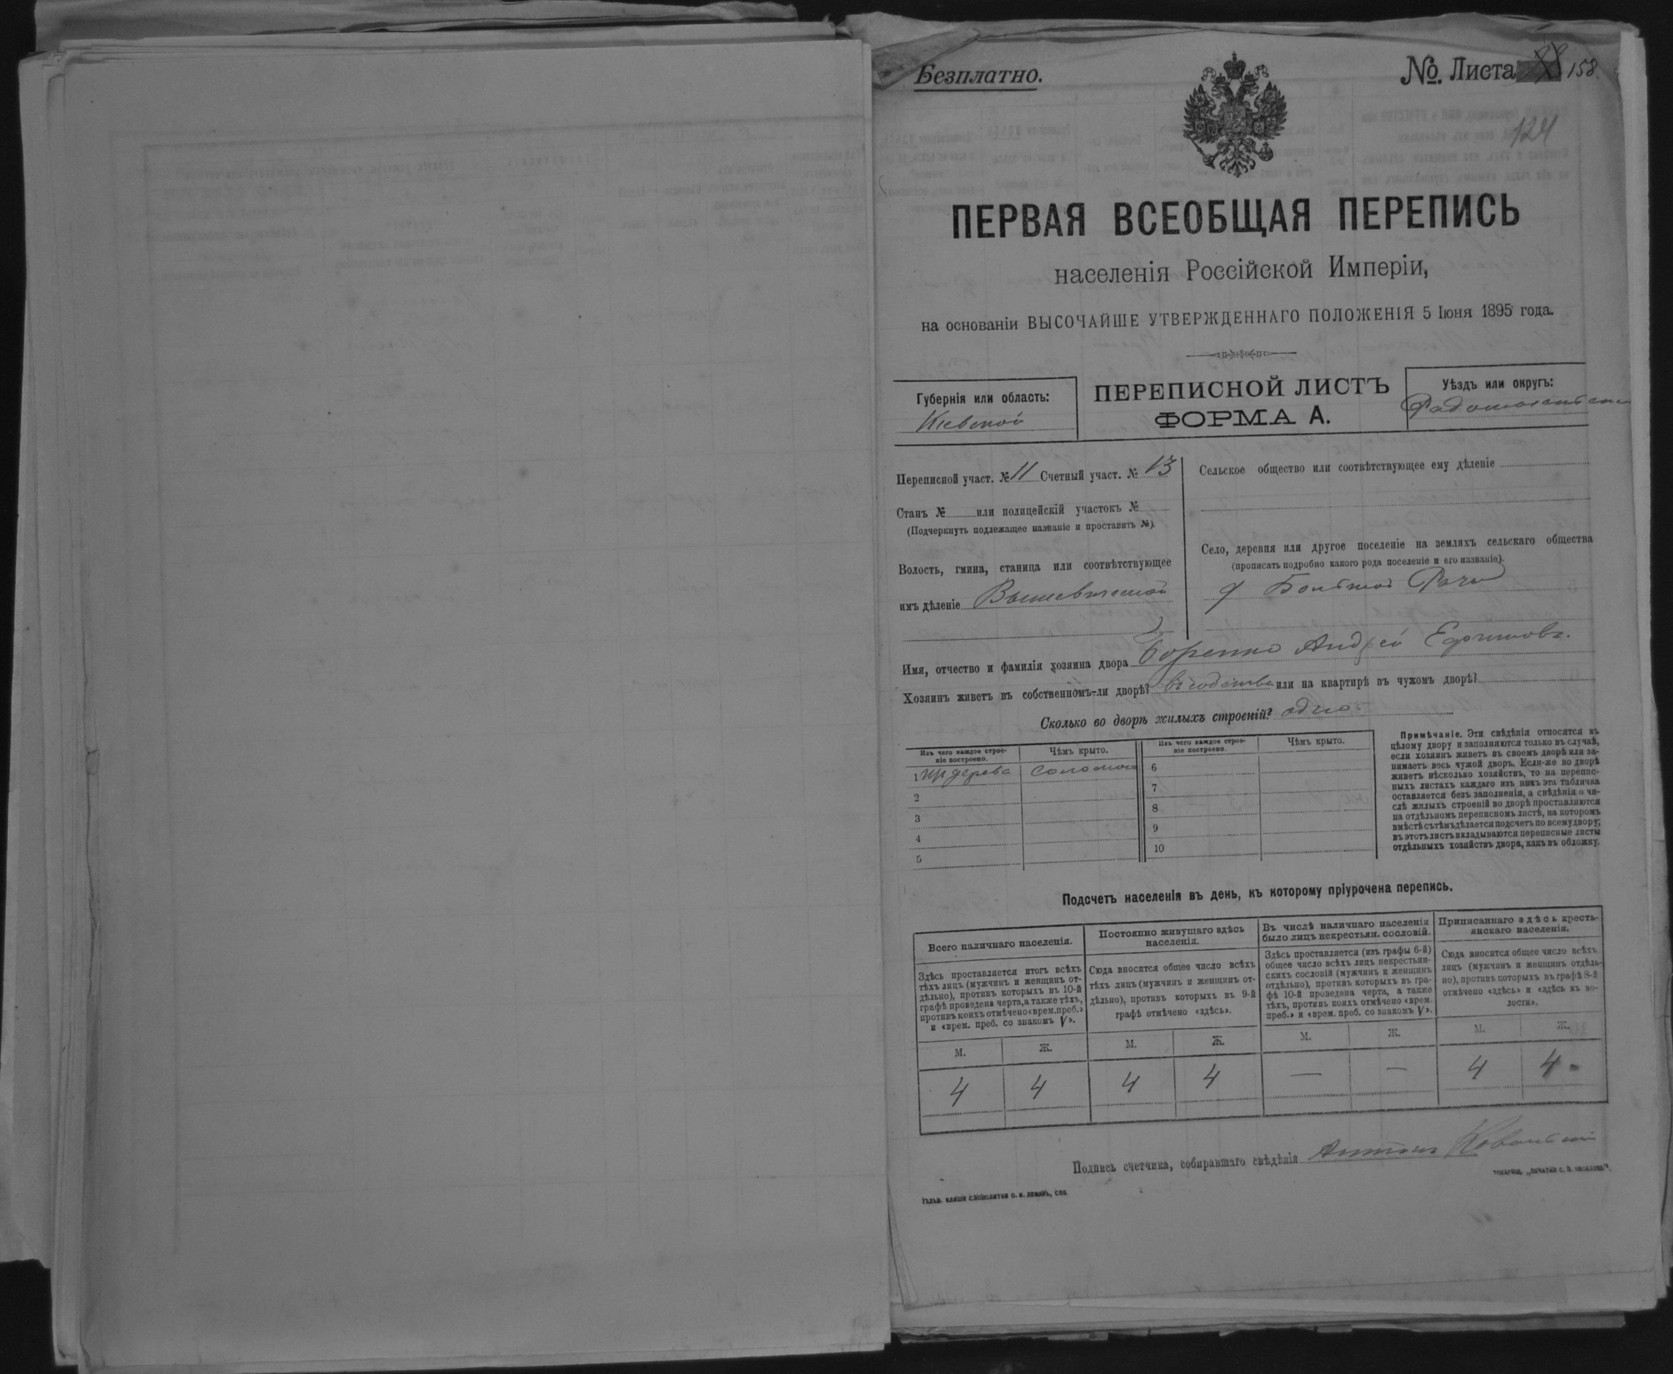 Безплатно.
№. Листа 158.
124
ПЕРВАЯ ВСЕОБЩАЯ ПЕРЕПИСЬ
населенія Россійской Имперіи,
на основаніи ВЫСОЧАЙШЕ УТВЕРЖДЕННАГО ПОЛОЖЕНІЯ 5 Іюня 1895 года.
Губернія или область:
Кіевской
ПЕРЕПИСНОЙ ЛИСТЪ
ФОРМА А.
Уѣздъ или округъ:
Переписной участ. № 11 Счетный участ. № 13
Станъ № или полицейскій участокъ №
(Подчеркнуть подлежащее названіе и проставить №).
Волость, гмина, станица или соотвѣтствующее
имъ дѣленіе Вышевичской
Сельское общество или соотвѣтствующее ему дѣленіе
Село, деревня или другое поселеніе на земляхъ сельскаго общества
(прописать подробно какого рода поселеніе и его названіе).
Имя, отчество и фамилія хозяина двора Андрей Ефимовъ.
Хозяинъ живетъ въ собственномъ-ли дворѣ? или на квартирѣ въ чужомъ дворѣ?
Сколько во дворѣ жилыхъ строеній? одно
Изъ чего каждое строе-
ніе построено.
Чѣмъ крыто.
Изъ чего каждое строе-
ніе построено.
Чѣмъ крыто.
1 дерева соломой
2
3
4
5
6
7
8
9
10
Примѣчаніе. Эти свѣдѣнія относятся къ
цѣлому двору и заполняются только въ случаѣ,
если хозяинъ живетъ въ своемъ дворѣ или за-
нимаетъ весь чужой дворъ. Если-же во дворѣ
живетъ нѣсколько хозяйствъ, то на перепис-
ныхъ листахъ каждаго изъ нихъ эта табличка
оставляется безъ заполненія, а свѣдѣнія о чи-
слѣ жилыхъ строеній во дворѣ проставляются
на отдѣльномъ переписномъ листѣ, на которомъ
вмѣстѣ съ тѣмъ дѣлается подсчетъ по всему двору;
въ этотъ листъ вкладываются переписные листы
отдѣльныхъ хозяйствъ двора, какъ въ обложку.
Подсчетъ населенія въ день, къ которому пріурочена перепись.
Всего наличнаго населенія.
Здѣсь проставляется итогъ всѣхъ
тѣхъ лицъ (мужчинъ и женщинъ от-
дѣльно), противъ которыхъ въ 10-й
графѣ проведена черта, а также тѣхъ,
противъ коихъ отмѣчено «врем. преб.»
и «врем. преб. со знакомъ V».
Постоянно живущаго здѣсь
населенія.
Сюда вносится общее число всѣхъ
тѣхъ лицъ (мужчинъ и женщинъ от-
дѣльно), противъ которыхъ въ 9-й
графѣ отмѣчено «здѣсь».
Въ числѣ наличнаго населенія
было лицъ некрестьян. сословій.
Здѣсь проставляется (изъ графы 6-й)
общее число всѣхъ лицъ некрестьян-
скихъ сословій (мужчинъ и женщинъ
отдѣльно), противъ которыхъ въ гра-
фѣ 10-й проведена черта, а также
тѣхъ, противъ коихъ отмѣчено «врем.
преб.» и «врем. преб. со знакомъ V».
Приписаннаго здѣсь кресть-
янскаго населенія.
Сюда вносится общее число всѣхъ
лицъ (мужчинъ и женщинъ отдѣль-
но), противъ которыхъ въ графѣ 8-й
отмѣчено «здѣсь» и «здѣсь къ во-
лости».
М. Ж. М. Ж. М. Ж. М. Ж.
4 4 4 4 — — 4 4
Подпись счетчика, собиравшаго свѣдѣнія Антонъ